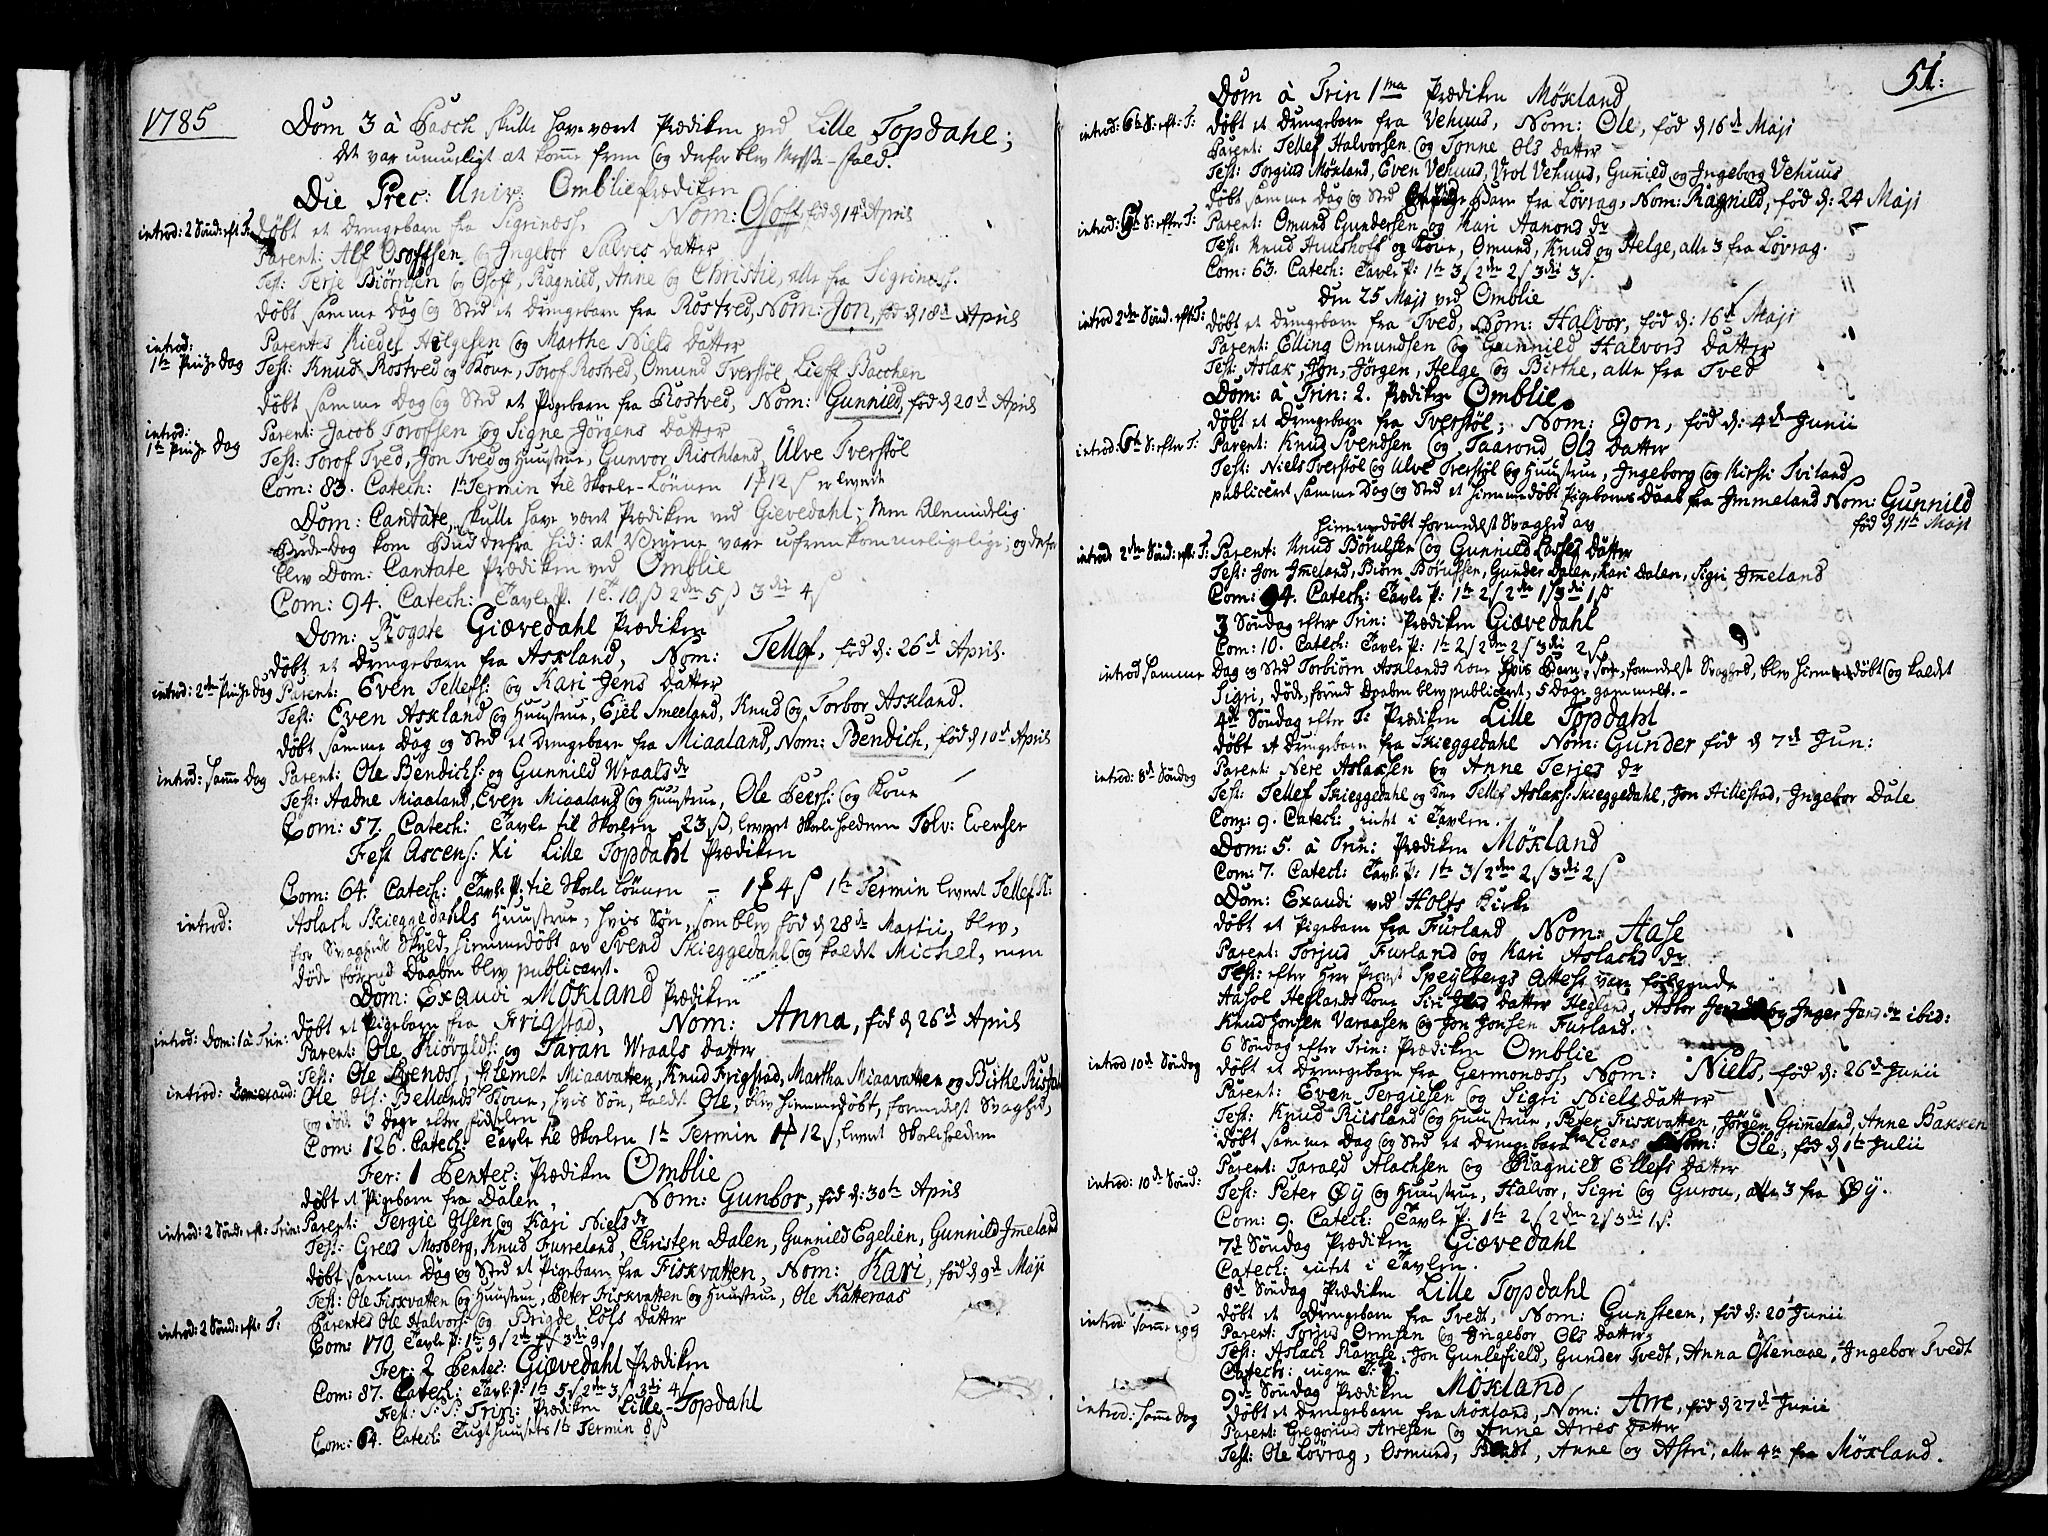 1785
Dom 3 à Pasch skulle have været Prædiken ved Lille Topdahl;
det var umueligt at komme frem og derfor blev Messe-fald.
Die Prec: Univ: Omblie Prædiken
introd: 2 Sønd: eft T: døbt et Drengebarn fra Sigrinæss, Nom: Osoff, fød d 14de April
Parent: Alf Osoffsen og Ingebor Salvis datter
Test: Terje Biörnsen og Osoff, Ragnild, Anne og Christie, alle fra Sigrinæss.
døbt samme Dag og Sted et Drengebarn fra Rostved, Nom: Jon, fød d 18de April
introd: 1te Pinze Dag
Parentes Kiedel Helgesen og Marthe Niels datter
Test: Knud Rostved og Kone, Torof Rostved, Omund Tverstøl, Lieff Bacchen
døbt samme Dag og Sted et Pigebarn fra Rostved, Nom: Gunnild, fød d 20de April
introd: 1te Pinze Dag
Parent: Jacob Torofsen og Signe Jörgens datter
Test: Torof Tved, Jon Tved og Huustrue, Gunvor Rischland, Ulve Tverstøl
Com: 83. Catech: 1te Termin til Skole-Lønnen 12 ß er leveret
Dom: Cantate, skulle have været Prædiken ved Gievedahl; Men Almindelig
Bede-Dag kom Bud derfra hid: at Vejene vare ufremkommelige; og derfor
blev Dom: Cantate Prædiken ved Omblie
Com: 94. Catech: Tavle P. 1t. 10 ß 2den 5 ß 3die 4 ß
Dom: Rogate Giævedahl Prædiken
døbt et Drengebarn fra Askland, Nom: Tellef, fød d: 26de April.
introd: 2den Pinze Dag Parent: Even Tellefs: og Kari Jens datter
Test: Even Askland og Huustrue, Ejel Smeeland, Knud og Torbor Askland.
døbt samme Dag og Sted et Drengebarn fra Miaaland, Nom: Bendich, fød d 10de April
introd: samme Dag Parent: Ole Bendichs: og Gunnild Wraals dr
Test: Aadne Miaaland, Even Miaaland og Huustrue, Ole Peers: og Kone
Com: 57. Catech: Tavle til Skolen 23 ß, leveret Skoleholderen Tolv: Evensen
Fest Ascens: Xi Lille Topdahl Prædiken
Com: 64. Catech: Tavle P: til Skole Lønnen 4 ß 1te Termin leveret Tellef K:
introd: Aslach Skieggedahls Huustrue, hvis Søn, som blev fød d 28de Martii, blev,
for Svaghed Skyld, hiemmedøbt av Svend Skieggedahl og kaldet Michel, men
døde førend Daaben blev publiceret.
Dom: Exaudi Möxland Prædiken
døbt et Pigebarn fra Frigstad, Nom: Anna, fød d 26de April
introd: Dom: 1 à Trin: Parent: Ole Kiövulds: og Taran Wraals datter
Test: Ole Lenæss, Klemet Miaavatten, Knud Frigstad, Martha Miaavatten og Birthe
introd: Dom: Exaud: Ole Ols: Bellands Kone, hvis Søn, kaldt Ole, blev hiemmedøbt, formedelst Svaghed,
og død 3 dage efter Fødselen
Com: 126. Catech: Tavle til Skolen 1te Termin 12 ß, leveret Skoleholderen
Fer: 1 Pentec: Prædiken Omblie
døbt et Pigebarn fra Dalen, Nom: Gunbor, fød d: 30te April
introd: 2 Sønd: eft: Trin: Parent: Tergie Olsen og Kari Niels dr
Test: Greed Mosberg, Knud Furreland, Christen Dalen, Gunnild Egelien, Gunnild Jmeland
døbt samme Dag og Sted et Pigebarn fra Fiskvatten, Nom: Kari, fød d 9de Maji
Test: Ole Fiskvatten og Huustrue, Peter Fiskvatten og Huustrue, Ole Katteraas
introd: 2 Sønd: eft: T: Parentes Ole Halvors: og Brigde Lols datter
Com: 170. Tavle P: 1te 9 ß 2de ß 3die 9 ß
Fer: 2 Pentec: Giævedahl Prædiken
Com: 87. Catech: Tavle P: 1te 5 ß 2den 3 ß 3di 4 ß
Fest: S: S: Trin: Prædiken Lille-Topdahl
Com: 64. Catech: Tugthuusets 1te Termin 8 ß
51:
Dom à Trin 1ma Prædiken Möxland
introd: 6te S: eft: T: døbt et Drengebarn fra Vehuus, Nom: Ole, fød d 16de Maji
Parent: Tellef Halvorsen og Tonne Ols datter
Test: Torgius Möxland, Even Vehuus, Vrol Vehuus, Gunnild og Ingeborg Vehuus
døbt samme Dag og Sted et Pige Barn fra Løvrag, Nom: Ragnild, fød d: 24 Maji
introd: S: efter T: Parent: Omund Gundersen og Mari Aanonds dr
Test: Knud Aaushoff og Kone, Omund, Knud og Helge, alle 3 fra Løvrag.
Com: 63. Catech: Tavle P: 1te 3 ß 2den 2 ß 3di 3 ß.
Den 25 Maji ved Omblie
introd 2den Sønd. eft: T: døbt et Drengebarn fra Tved, Nom: Halvor, fød d: 16de Maji
Parent: Elling Omundsen og Gunnild Halvors datter
Test: Aslak, Jon, Jörgen, Helge og Birthe, alle fra Tved
Dom: à Trin: 2. Prædiken Omblie.
døbt et Drengebarn fra Tverstøl, Nom: Jon, fød d: 4de Junii
introd: 6te S: efter T: Parent: Knud Svendsen og Taarond Ols datter
Test: Niels Tverstøl og Ulve Tverstøl og Huustrue, Ingeborg og Kirsti Tviland
publiceret samme Dag og Sted et hiemmedøbt Pigebarns Daab fra Jmmeland Nom: Gunnild
fød d 11te Maji
hiemmedøbt formedelst Svaghed av
introd: 2den Sønd: eft: T: Parent: Knud Börulfsen og Gunnild Lasses datter
Test: Jon Jmeland, Biörn Börufsen, Gunder Dalen, Kari Dalen, Sigri Jmeland
Com: 94. Catech: Tavle P: 1te 2 ß 2de 1 ß 3di 1 ß
3 Søndag efter Trin: Prædiken Giævedahl
Com: 10. Catech: Tavle P: 1te 2 ß 2den 2 ß 3di 2 ß
introd samme Dag og Sted Torbiörn Asklands Kone hvis Barn, som, formedelst Svaghed, blev hiemmedøbt og kaldet
Sigri, døde, førend Daaben blev publiceret, 5 Dage gammelt.-
4de Søndag efter T: Prædiken Lille Topdahl
døbt et Drengebarn fra Skieggedahl Nom: Gunder fød d 7de Jun:
introd: 8de Søndag Parent: Nere Aslaksen og Anne Terjes dr
Test: Tellef Skieggedahl og Kone Tellef Aslaks: Skieggedahl, Jon Hillestad, Ingebor Dale
Com: 9. Catech: intet i Tavlen.
Dom: 5. à Trin: Prædiken Möxland
Com: 7. Catech: Tavle P: 1te 3 ß 2den 2 ß 3di 2 ß
Dom: Exaudi ved Holts Kirke
døbt et Pigebarn fra Furland Nom: Aase
Parent: Torjud Furland og Kari Aslachs dr
Test: efter Herr Provst Speylbergs Attest vare følgende
Aasol Heglands Kone Siri datter Hegland, Astor og Inger Jens dr ibid:
Knud Jonsen Varaasen og Jon Jonsen Furland.
6 Søndag efter Trin: Prædiken Omblie
introd 10de Søndag døbt et Drengebarn fra Germonæss, Nom: Niels, fød d: 26de Junii
Parent: Even Tergiesen og Sigri Niels datter
Test: Knud Riisland og Huustrue, Peter Fiskvatten, Jörgen Grimeland, Anne Bakken
døbt samme Dag og Sted et Drengebarn fra Lions Nom: Ole, fød d 1te Julii
introd: 10de Sønd: Parent: Tarald Alachsen og Ragnild Ellefs datter
Test: Peter Øÿ og Huustrue, Halvor, Sigri og Gurou, alle 3 fra Øÿ.
Com: 9. Catech: Tavle P. 1te 2 ß 2den 2 ß 3di 1 ß.
7de Søndag Prædiken Giævedahl
Catech: intet i Tavlen.
8de Søndag Prædiken Lille Topdahl
introd: samme Dag døbt et Drengebarn fra Tvedt, Nom: Gunsteen, fød d: 20 Junii
Parent: Torjus Ormsen og Ingebor Ols datter
Test: Aslach Ramse, Jon Gunlefield, Gunder Tvedt, Anna Östenaae, Ingebor Tvedt
Catech: ingen
9de Søndag Prædiken Möxland
introd: samme Dag døbt et Drengebarn fra Möxland, Nom: Arre, fød d 27de Junii
Parent: Gregorius Arresen og Anne Arres datter
Test: Ole Løvrag, Osmund, Bendt, Anne og Astri, alle 4re fra Möxland.